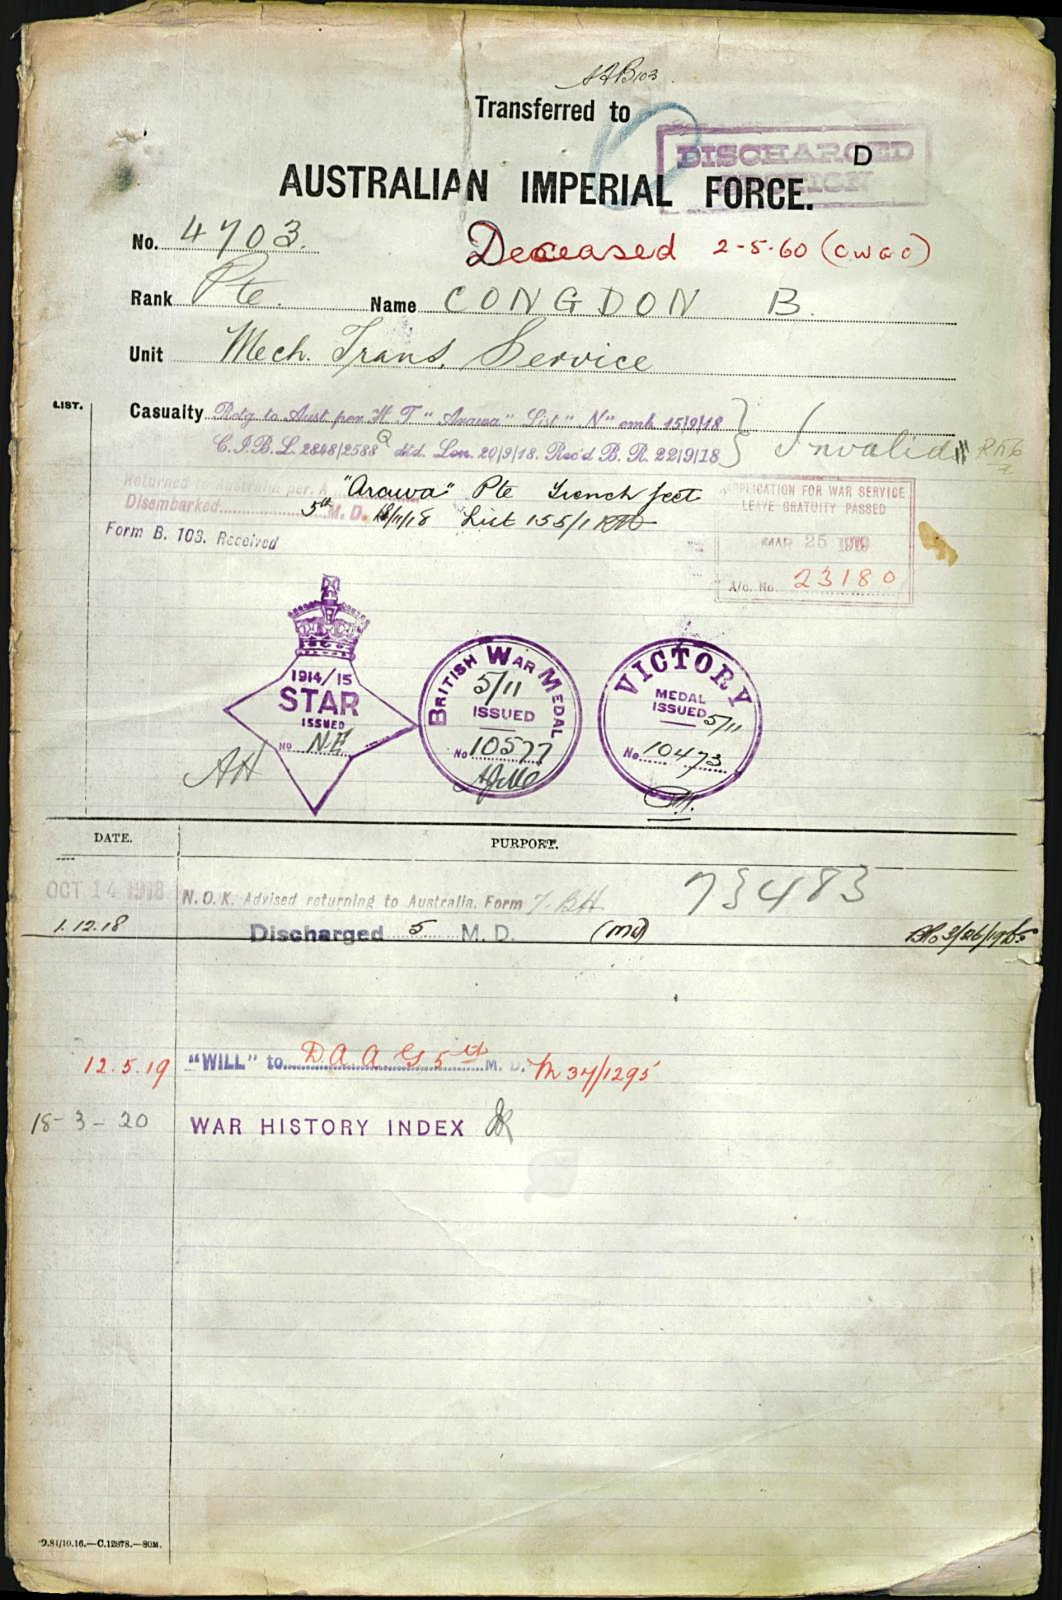 Transferred to
DISCHARGED D
AUSTRALIAN IMPERIAL FORCE.
No. 4703.
Deceased 2-5-60 (CWGC)
Rank Pte. Name CONGDON B.
Unit Mech. Trans. Service
LIST.
Casualty Retg to Aust per H.T "Arawa" List "N" emb 15/9/18
C.I.B.L. 2848/2588 Q d/d. Lon. 20/9/18. Rec'd B.R. 22/9/18 } Invalid
Returned to Australia per. "Arawa" Pte Trench feet
Disembarked 5th M.D. /11/18 List 155/1
Form B. 103. Received
APPLICATION FOR WAR SERVICE
LEAVE GRATUITY PASSED
MAR 25 1919
A/c. No. 23180
1914/15
STAR
ISSUED
No N.E
AH
BRITISH WAR MEDAL
5/11
ISSUED
No 10577
VICTORY
MEDAL
ISSUED 5/11
No 10473
DATE. PURPORT.
OCT 14 1918 N.O.K. Advised returning to Australia. Form 73483
1.12.18 Discharged 5 M.D. (MU)
12.5.19 "WILL" to D A A G 5th M. D. M 34/1295
18-3-20 WAR HISTORY INDEX
D.81/10.16.—C.12878.—80M.